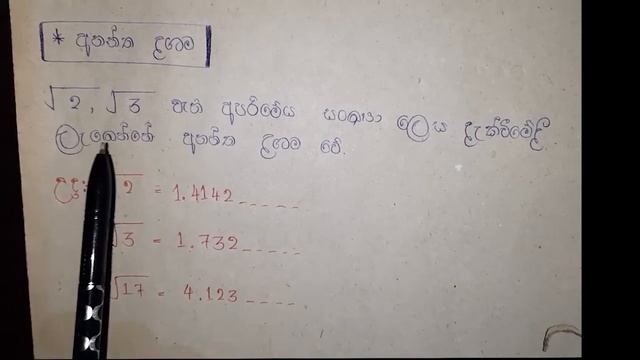 * අනන්ත දශම
√2, √3 වැනි අපරිමේය සංඛ්‍යා ලෙස දැක්වීමේදී
ලැබෙන්නේ අනන්ත දශම වේ.
උදා: √2 = 1.4142_____
√3 = 1.732_____
√17 = 4.123____